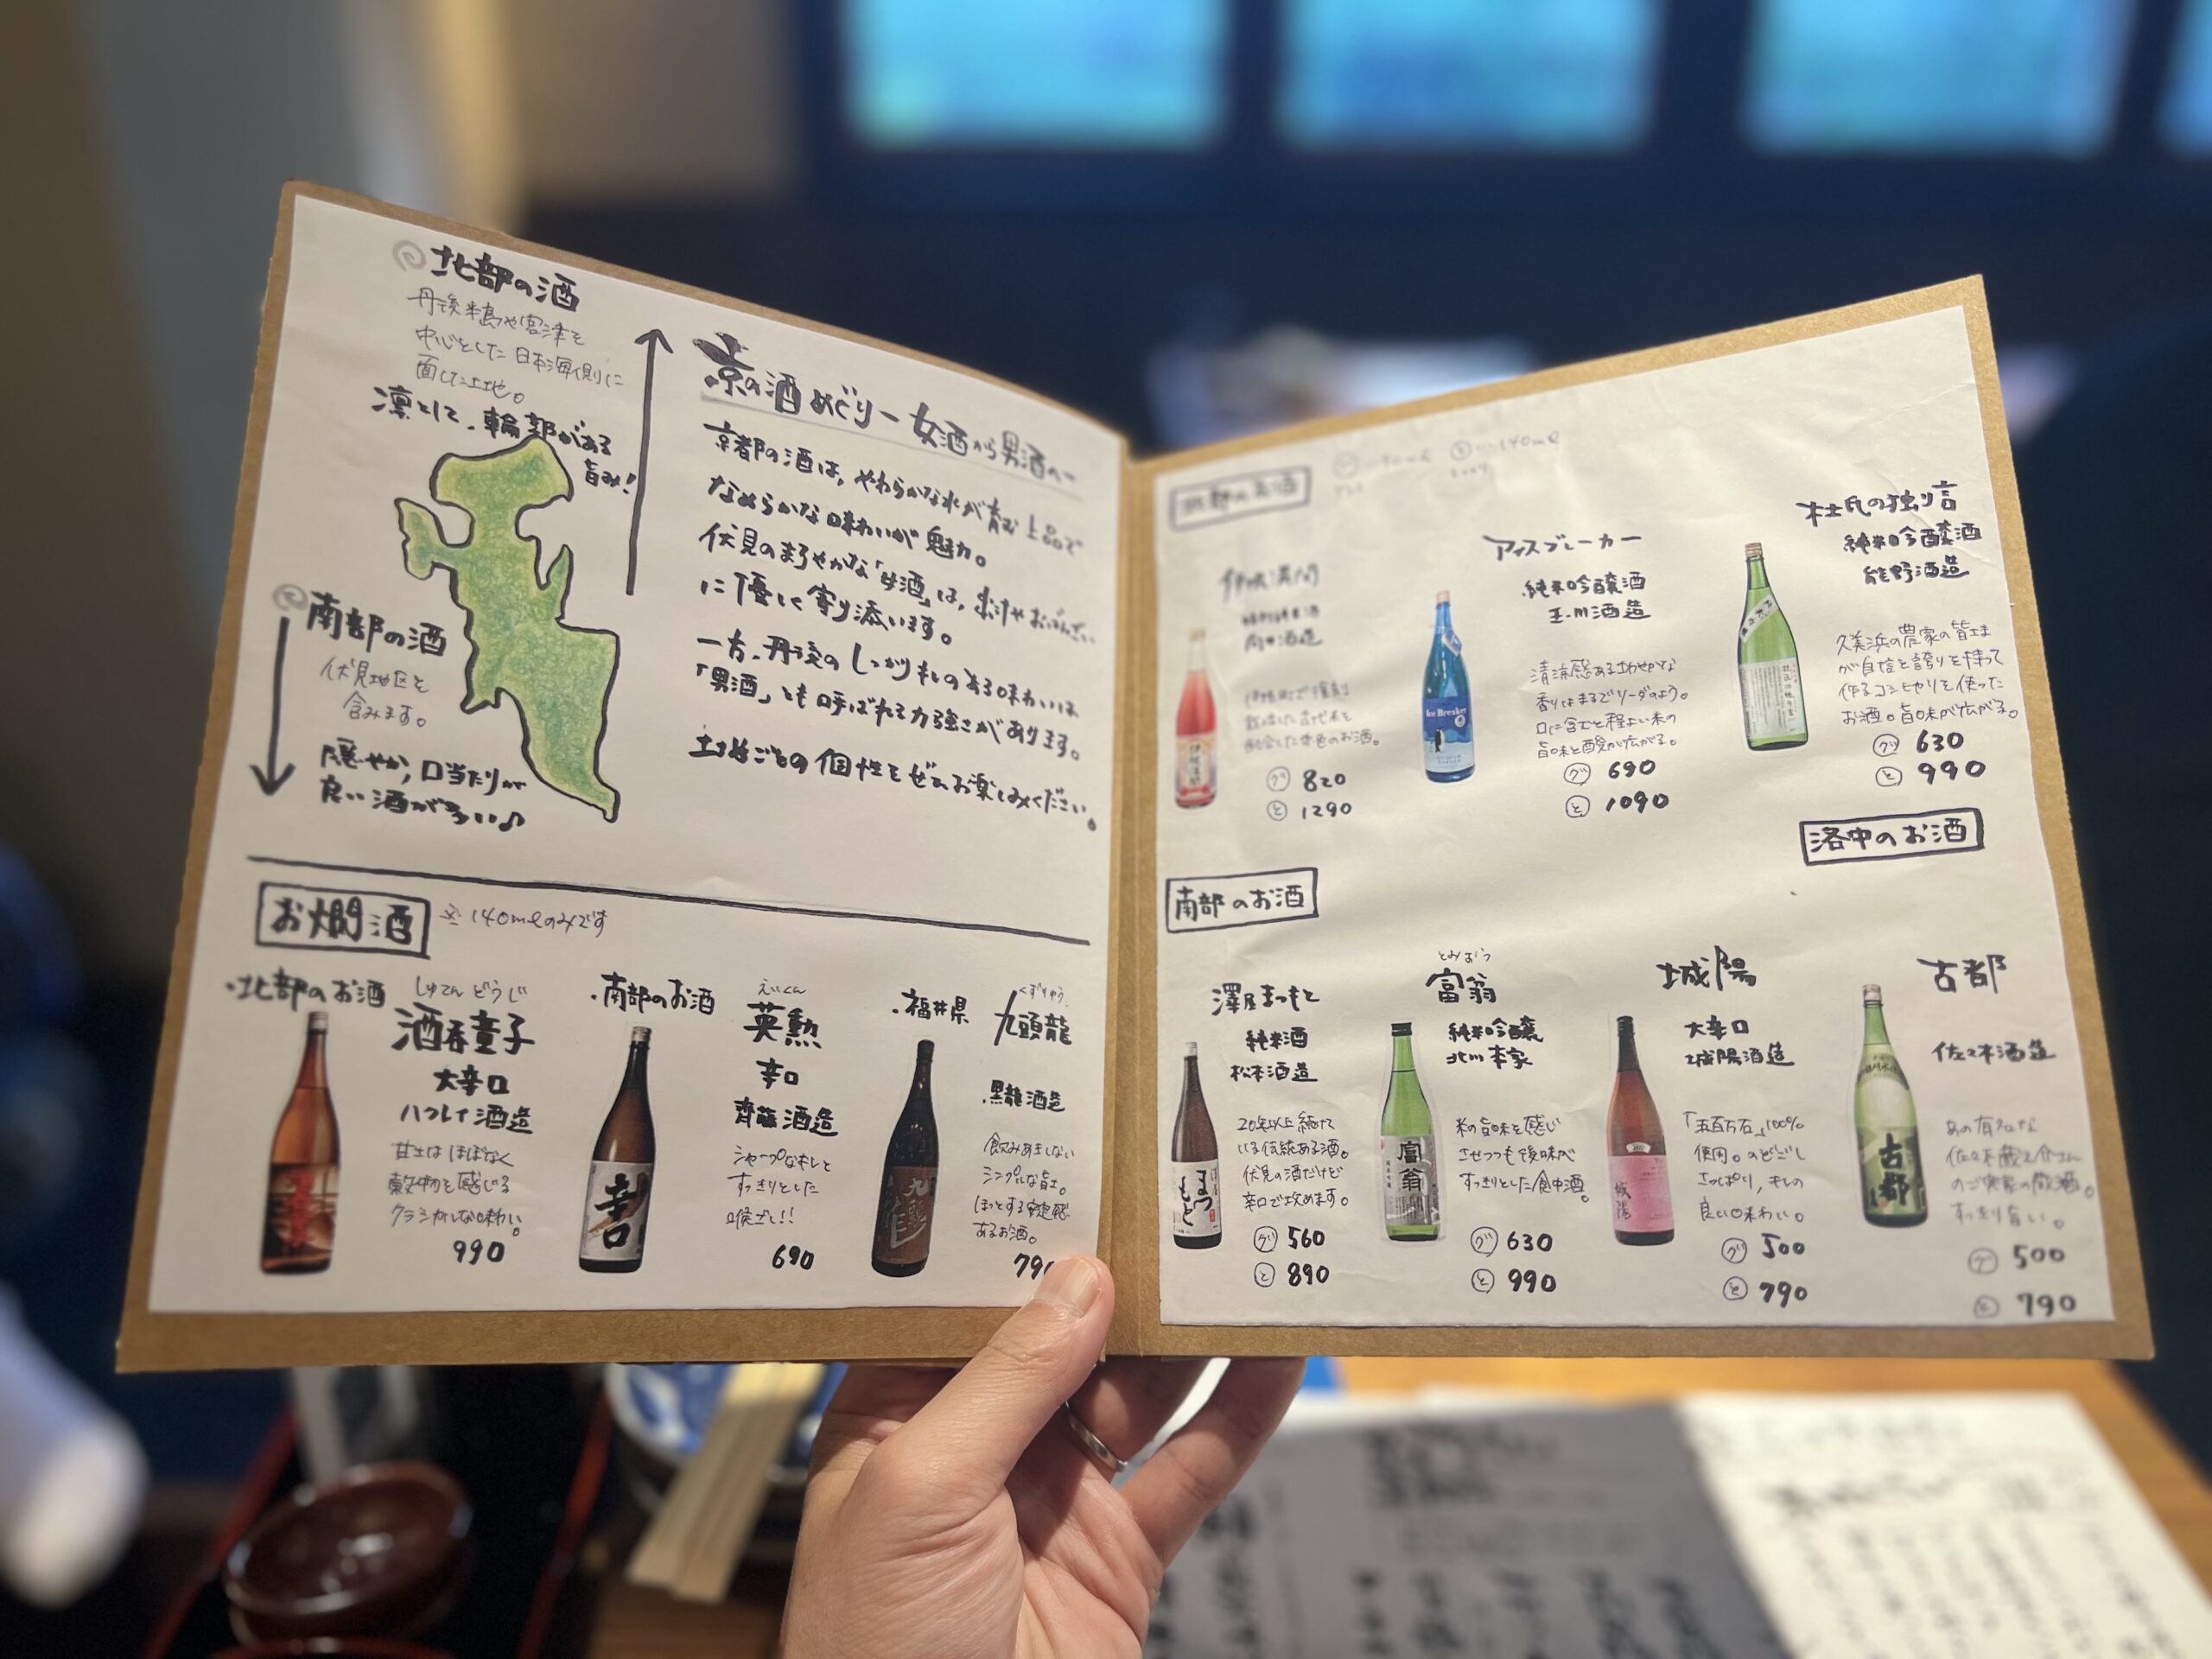 北部の酒
丹後半島や宮津を
中心とした日本海側に
面した土地。
凛として、輪郭がある
旨み!
南部の酒
伏見地区を
含みます。
穏やか,口当たりが
良い酒が多い♪
京の酒めぐりー女酒から男酒へー
京都の酒は,やわらかな水が育む上品で
なめらかな味わいが魅力。
伏見のまろやかな「女酒」は,出汁やおばんざい
に優しく寄り添います。
一方、丹後のしっかりキレのある味わいは
「男酒」とも呼ばれる力強さがあります。
土地ごとの個性をぜひお楽しみください。
お燗酒 ※140mlのみです
・北部のお酒
しゅてんどうじ
酒呑童子
大辛口
ハクレイ酒造
甘さはほぼなく
穀物を感じる
クラシカルな味わい。
990
・南部のお酒
えいくん
英勲
辛口
齊藤酒造
シャープなキレと
すっきりとした
喉ごし!!
690
辛口
・福井県
くずりゅう
九頭龍
黒龍酒造
飲みあきしない
シンプルな旨さ。
ほっとする安定感
あるお酒。
790
北部のお酒
140ml
伊根満開
向井酒造
グ 820
と 1290
アイスブレーカー
純米吟醸酒
玉川酒造
清涼感あるさわやかな
香りはまるでソーダのよう。
口に含むと程よい米の
旨味と酸が広がる。
グ 690
と 1090
Ice Breaker
杜氏の独り言
純米吟醸酒
熊野酒造
久美浜の農家の皆さま
が自信と誇りを持って
作るコシヒカリを使った
お酒。旨味が広がる。
グ 630
と 990
洛中のお酒
南部のお酒
澤屋まつもと
純米酒
松本酒造
20年以上続けて
いる伝統ある酒。
伏見の酒だけど
辛口で攻めます。
グ 560
と 890
まつもと
とみおう
富翁
純米吟醸
北川本家
米の旨味を感じ
させつつも後味が
すっきりとした食中酒。
グ 630
と 990
富翁
城陽
大辛口
城陽酒造
「五百万石」100%
使用。のどごし
さっぱり,キレの
良い味わい。
グ 500
と 790
城陽
古都
佐々木酒造
あの有名な
佐々木蔵之介さん
のご実家の蔵酒。
すっきり旨い。
グ 500
と 790
古都